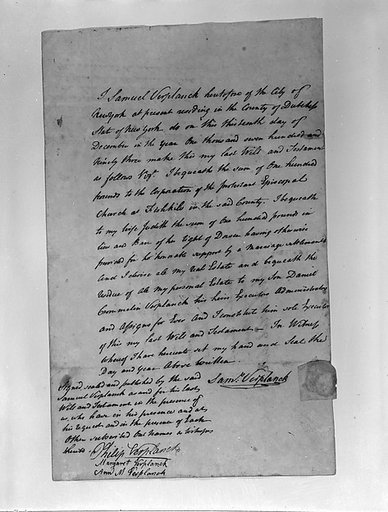 I Samuel Verplanck heretofore of the City of
New York at present residing in the County of Dutchess
State of New York do on this thirteenth day of
December in the Year One thousand seven hundred and
Ninety three make this my last Will and Testament
as follows Vizt I bequeath the sum of One hundred
Pounds to the Corporation of the Protestant Episcopal
Church at Fishkill in the said County. I bequeath
to my wife Judith the sum of One hundred pounds in
lieu and Barr of her right of Dower having otherwise
provided for her honorable support by a Marriage Settlement
And I devise all my real Estate and bequeath the
residue of all my personal Estate to my Son Daniel
Crommelin Verplanck his heirs Executors Administrators
and Assigns for Ever And I constitute him sole Executor
of this my last Will and Testament In Witness
whereof I have hereunto set my hand and Seal the
Day and year Above written
Saml. Verplanck
Signed sealed and published by the said
Samuel Verplanck as and for his last
Will and Testament in the presence of
us who have in his presence and at
his request and in the presence of Each
Other subscribed Our names as witnesses
hereto
Philip Verplanck
Margaret Verplanck
Ann M Verplanck